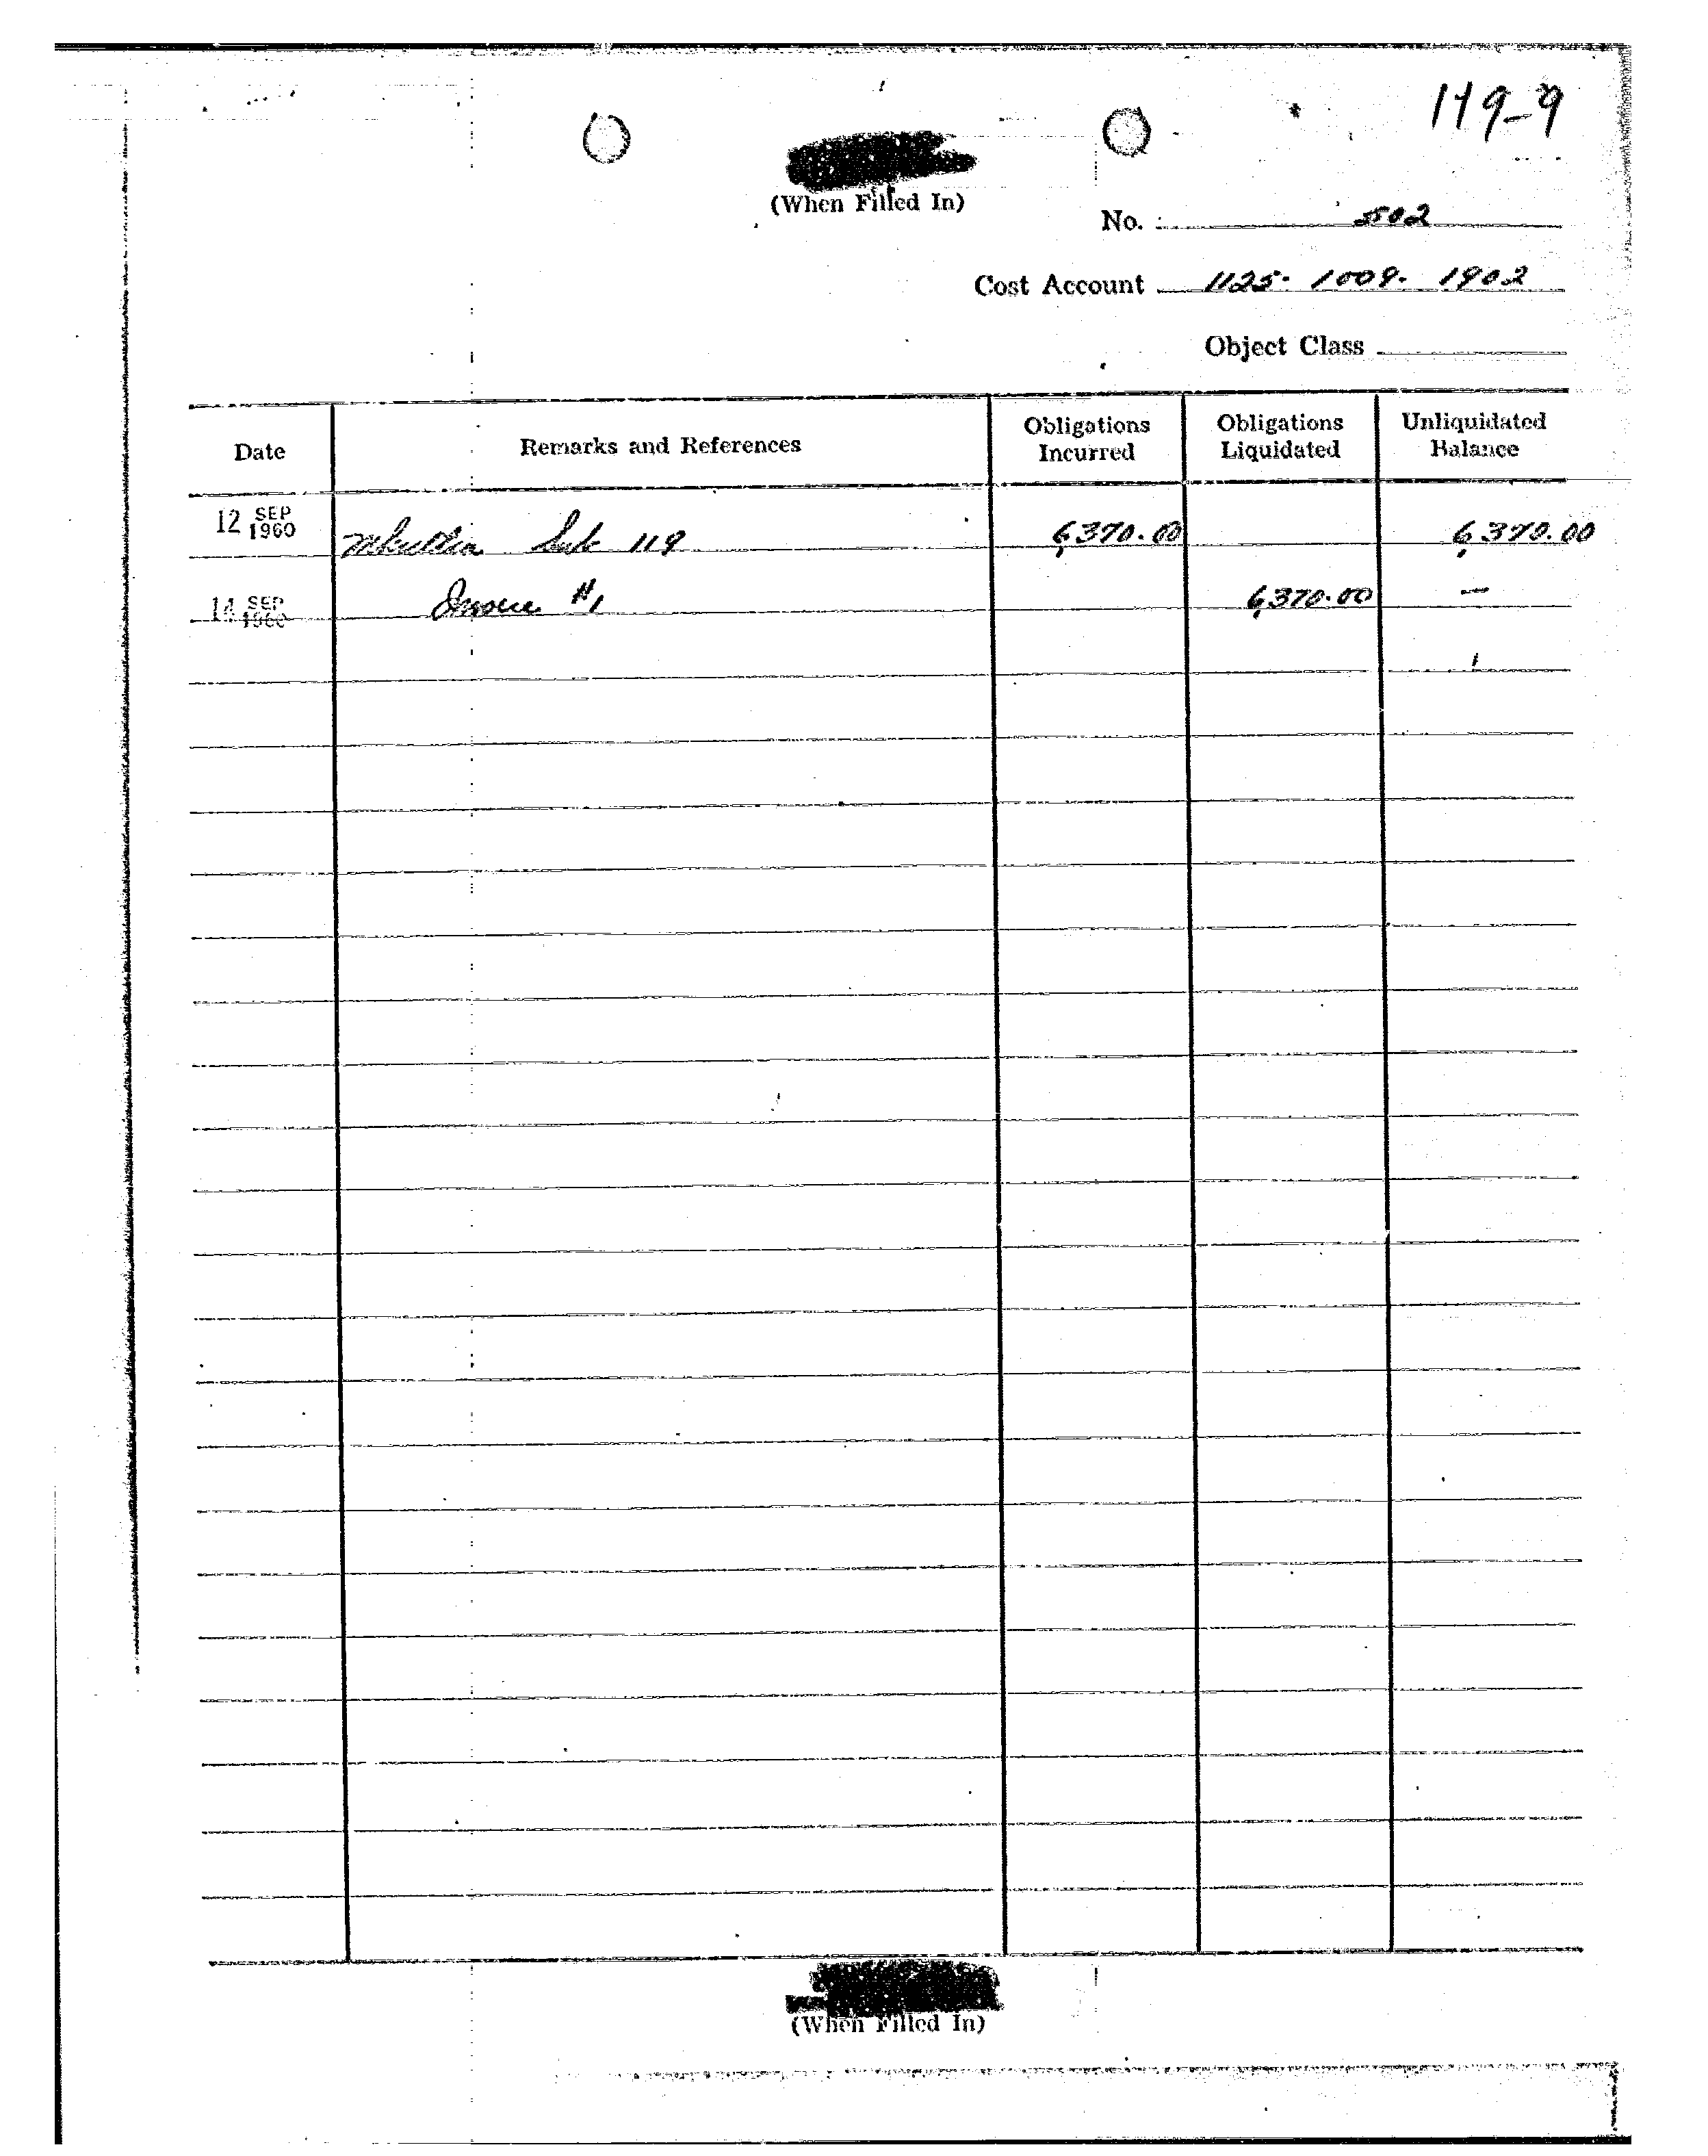 119-9
(When Filled In)
No. 502
Cost Account 1125- 1009- 1902
Object Class
Date Remarks and References Obligations Incurred Obligations Liquidated Unliquidated Balance
12 SEP 1960 Mkultra Sub 119 6,370.00 6,370.00
14 SEP 1960 Invoice #1 6,370.00 —
(When Filled In)